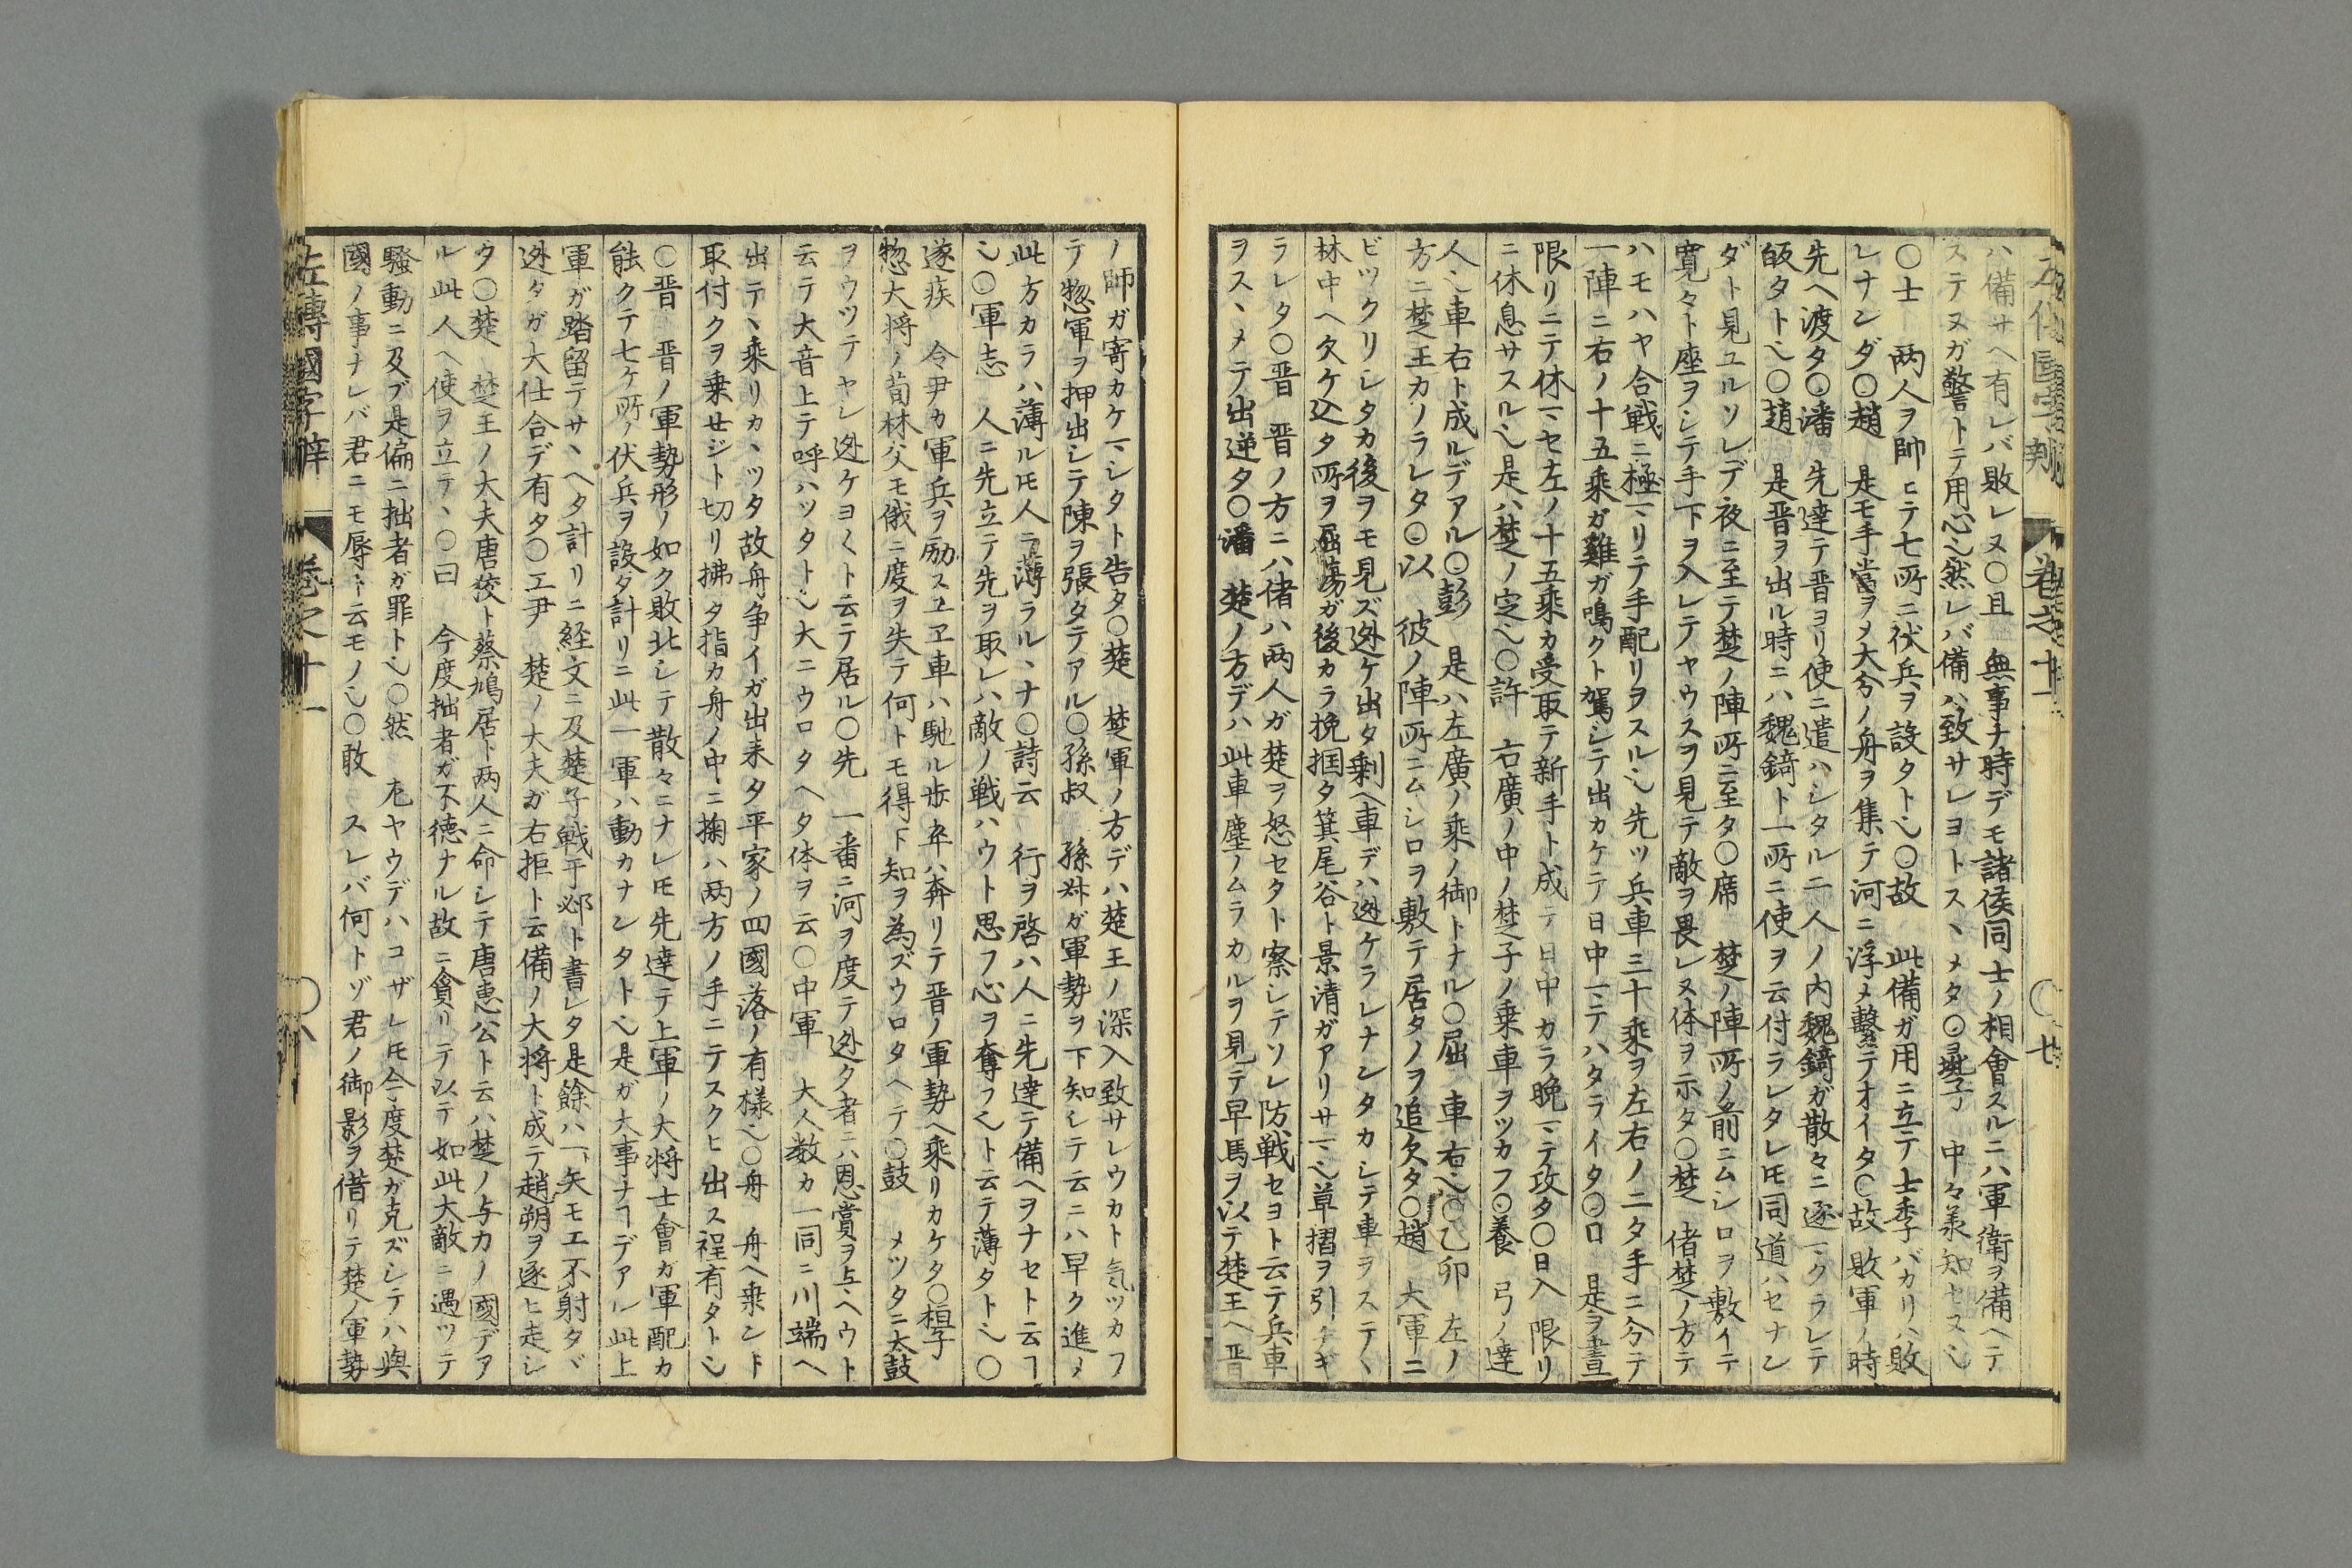 左傳國字辯 卷之十一 〇七
ハ備サヘ有レバ敗レヌ〇且 無事ナ時デモ諸侯同士ノ相會スルニハ軍衛ヲ備ヘテ
ステヌガ警トテ用心乄然レバ備ハ致サレヨトスヽメタ〇彘子 中々美知セス乄
〇士 两人ヲ帥ヒテ七所ニ伏兵ヲ設タト乄〇故 此備ガ用ニ立テ士季バカリハ敗
レナンダ〇趙 是モ手當ヲメ大夲ノ舟ヲ集テ河ニ浮メ繫テオイタ〇故 敗軍ノ時
先ヘ渡タ〇潘 先達テ晋ヨリ使ニ遣ハシタル二人ノ内魏錡ガ散々ニ逐マクラレテ
皈タト乄〇趙 是晋ヲ出ル時ニハ魏錡ト一所ニ使ヲ云付ラレタレ𪜈同道ハセナン
ダト見ユルソレデ夜ニ至テ楚ノ陣所ニ至タ〇席 楚ノ陣所ノ前ニムシロヲ敷イテ
寛々ト座ヲシテ手下ヲ入レテヤウスヲ見テ敵ヲ畏レヌ体ヲ示タ〇楚 偖楚ノ方テ
ハモハヤ合戦ニ極マリテ手配リヲスル乄先ツ兵車三十乘ヲ左右ノ二タ手ニ分テ
一陣ニ右ノ十五乘ガ雞ガ鳴クト駕シテ出カケテ日中マテハタライタ〇日 是ヲ晝
限リニテ休マセ左ノ十五乘カ受取テ新手ト成テ日中カラ晩マテ攻タ〇日入 限リ
ニ休息サスル乄是ハ楚ノ定乄〇許 右廣ノ中ノ楚子ノ乗車ヲツカフ〇養 弓ノ達
人乄車右ト成ルデアル〇彭 是ハ左廣ノ乘ノ御トナル〇屈 車右乄〇乙卯 左ノ
方ニ楚王カノラレタ〇以 彼ノ陣所ニムシロヲ敷テ居タノヲ追欠タ〇趙 大軍ニ
ビツクリシタカ後ヲモ見ズ迯ケ出タ剰ヘ車デハ迯ケラレナンタカシテ車ヲステヽ
林中ヘ欠ケ込タ所ヲ屈蕩ガ後カラ挽掴タ箕尾谷ト景清ガアリサマ乄草摺ヲ引チギ
ラレタ〇晋 晋ノ方ニハ偖ハ两人ガ楚ヲ怒セタト察シテソレ防戦セヨト云テ兵車
ヲスヽメテ出逆タ〇潘 楚ノ方デハ此車塵ノムラカルヲ見テ早馬ヲ以テ楚王ヘ晋
ノ師ガ寄カケマシタト告タ〇楚 楚軍ノ方デハ楚王ノ深入致サレウカト気ツカフ
テ惣軍ヲ押出シテ陳ヲ張タテアル〇孫叔 孫叔ガ軍勢ヲ下知シテ云ニハ早ク進メ
此方カラハ薄ル𪜈人ニ薄ラルヽナ〇詩云 行ヲ啓ハ人ニ先達テ備ヘヲナセト云ヿ
乄〇軍志 人ニ先立テ先ヲ取レハ敵ノ戦ハウト思フ心ヲ奪フ乄ト云テ薄タト乄〇
遂疾 令尹カ軍兵ヲ励スユヱ車ハ馳ル歩卒ハ奔リテ晋ノ軍勢ヘ乘リカケタ〇桓子
惣大将ノ荀林父モ俄ニ度ヲ失テ何トモ得下知ヲ為ズウロタヘテ〇鼓 メツタニ太鼓
ヲウツテヤレ迯ケヨ〱ト云テ居ル〇先 一番ニ河ヲ度テ迯ク者ニハ恩賞ヲ与ヘウト
云ラ大音上テ呼ハツタト乄大ニウロタヘタ体ヲ云〇中軍 大人数カ一同ニ川端ヘ
出テヽ乘リカヽツタ故舟争イガ出来タ平家ノ四國落ノ有様乄〇舟 舟ヘ乗ント
取付クヲ乗せジト切リ拂タ指カ舟ノ中ニ掬ハ两方ノ手ニテスクヒ出ス程有タト乄
〇晋 晋ノ軍勢形ノ如ク敗北シテ散々ニナレ𪜈先達テ上軍ノ大将士會ガ軍配カ
能クテ七ケ所ノ伏兵ヲ設タ計リニ此一軍ハ動カナンタト乄是ガ大事ナヿデアル此上
軍ガ踏留テサヽヘタ計リニ経文ニ及楚子戦于邲ト書レタ是餘ハ一矢モエ不射タヾ
迯タガ大仕合デ有タ〇工尹 楚ノ大夫ガ右拒ト云備ノ大将ト成テ趙朔ヲ逐ヒ走シ
タ〇楚 楚王ノ大夫唐狡ト蔡鳩居ト两人ニ命シテ唐恵公ト云ハ楚ノ与力ノ國デア
ル此人ヘ使ヲ立テヽ〇曰 今度拙者ガ不徳ナル故ニ貪リテ以テ如此大敵ニ遇ツテ
騒動ニ及ブ是偏ニ拙者ガ罪ト乄〇然 左ヤウデハコザレ𪜈今度楚ガ克ズシテハ與
國ノ事ナレバ君ニモ辱ト云モノ乄〇敢 スレバ何トゾ君ノ御影ヲ借リテ楚ノ軍勢
左傳國字辯 卷之十一 〇八